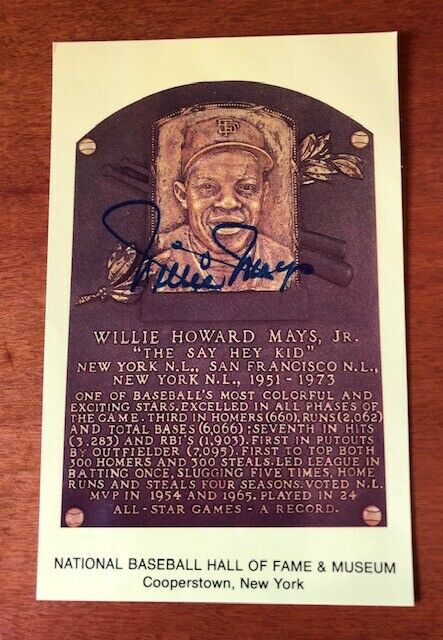 SF
Willie Mays
WILLIE HOWARD MAYS, JR.
"THE SAY HEY KID"
NEW YORK N.L., SAN FRANCISCO N.L.,
NEW YORK N.L., 1951 - 1973
ONE OF BASEBALL'S MOST COLORFUL AND
EXCITING STARS. EXCELLED IN ALL PHASES OF
THE GAME. THIRD IN HOMERS (660), RUNS (2,062)
AND TOTAL BASES (6,066); SEVENTH IN HITS
(3,283) AND RBI'S (1,903). FIRST IN PUTOUTS
BY OUTFIELDER (7,095). FIRST TO TOP BOTH
300 HOMERS AND 300 STEALS. LED LEAGUE IN
BATTING ONCE, SLUGGING FIVE TIMES, HOME
RUNS AND STEALS FOUR SEASONS. VOTED N.L.
MVP IN 1954 AND 1965. PLAYED IN 24
ALL-STAR GAMES - A RECORD.
NATIONAL BASEBALL HALL OF FAME & MUSEUM
Cooperstown, New York